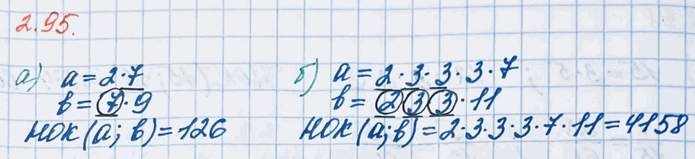 2.95.
а) a = 2·7
в = 7·9
НОК (а; в) = 126
б) a = 2·3·3·3·7
в = 2 3 3·11
НОК (а;в) = 2·3·3·3·7·11 = 4158